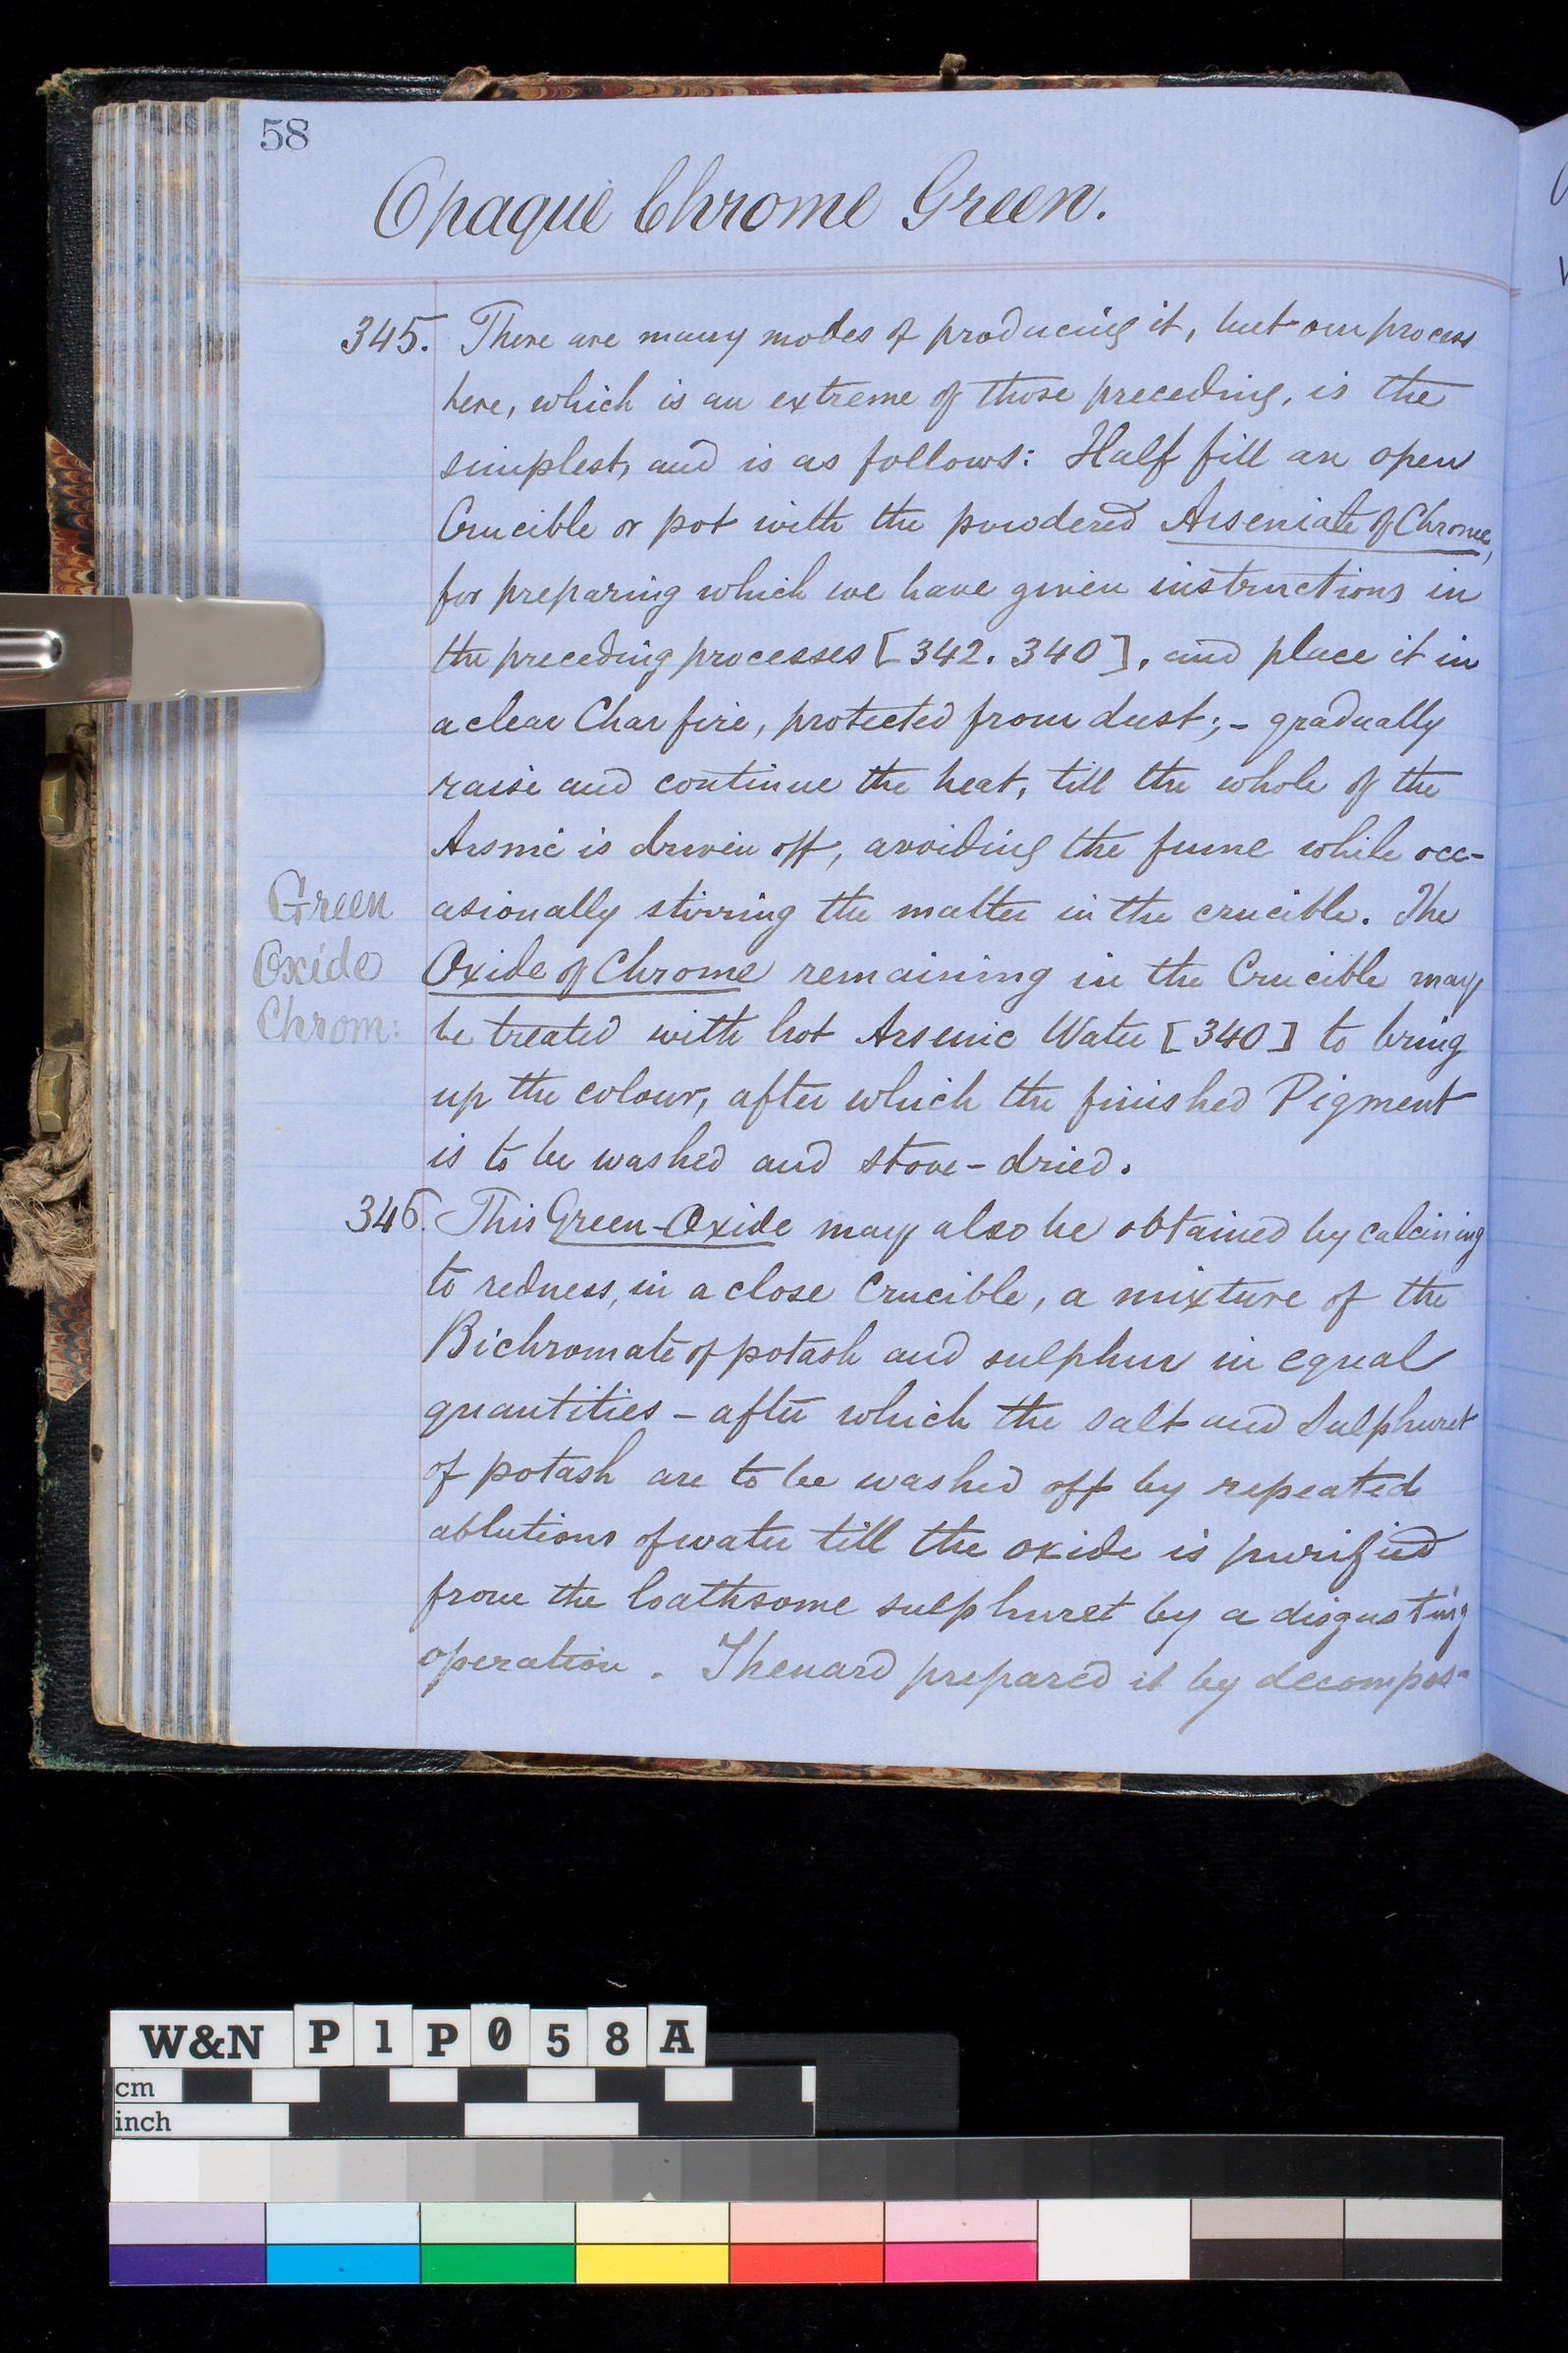 58
Opaque Chrome Green.
345. There are many modes of producing it, but our process
here, which is an extreme of those preceding, is the
simplest, and is as follows: Half fill an open
Crucible or pot with the powdered Arseniate of Chrome,
for preparing which we have given instructions in
the preceding processes [342. 340], and place it in
a clear Char fire, protected from dust; - gradually
raise and continue the heat, till the whole of the
Arsnic is driven off, avoiding the fume while occ-
asionally stirring the matter in the crucible. The
Oxide of Chrome remaining in the Crucible may
be treated with hot Arsenic Water [340] to bring
up the colour, after which the finished Pigment
is to be washed and stove-dried.
Green
Oxide
Chrom:
346. This Green-Oxide may also be obtained by calcining
to redness, in a close Crucible, a mixture of the
Bichromate of potash and sulphur in equal
quantities - after which the salt and Sulphuret
of potash are to be washed off by repeated
ablutions of water till the oxide is purified
from the loathsome sulphuret by a disgusting
operation. Thenard prepared it by decompos-
W&N P1P058A
cm
inch